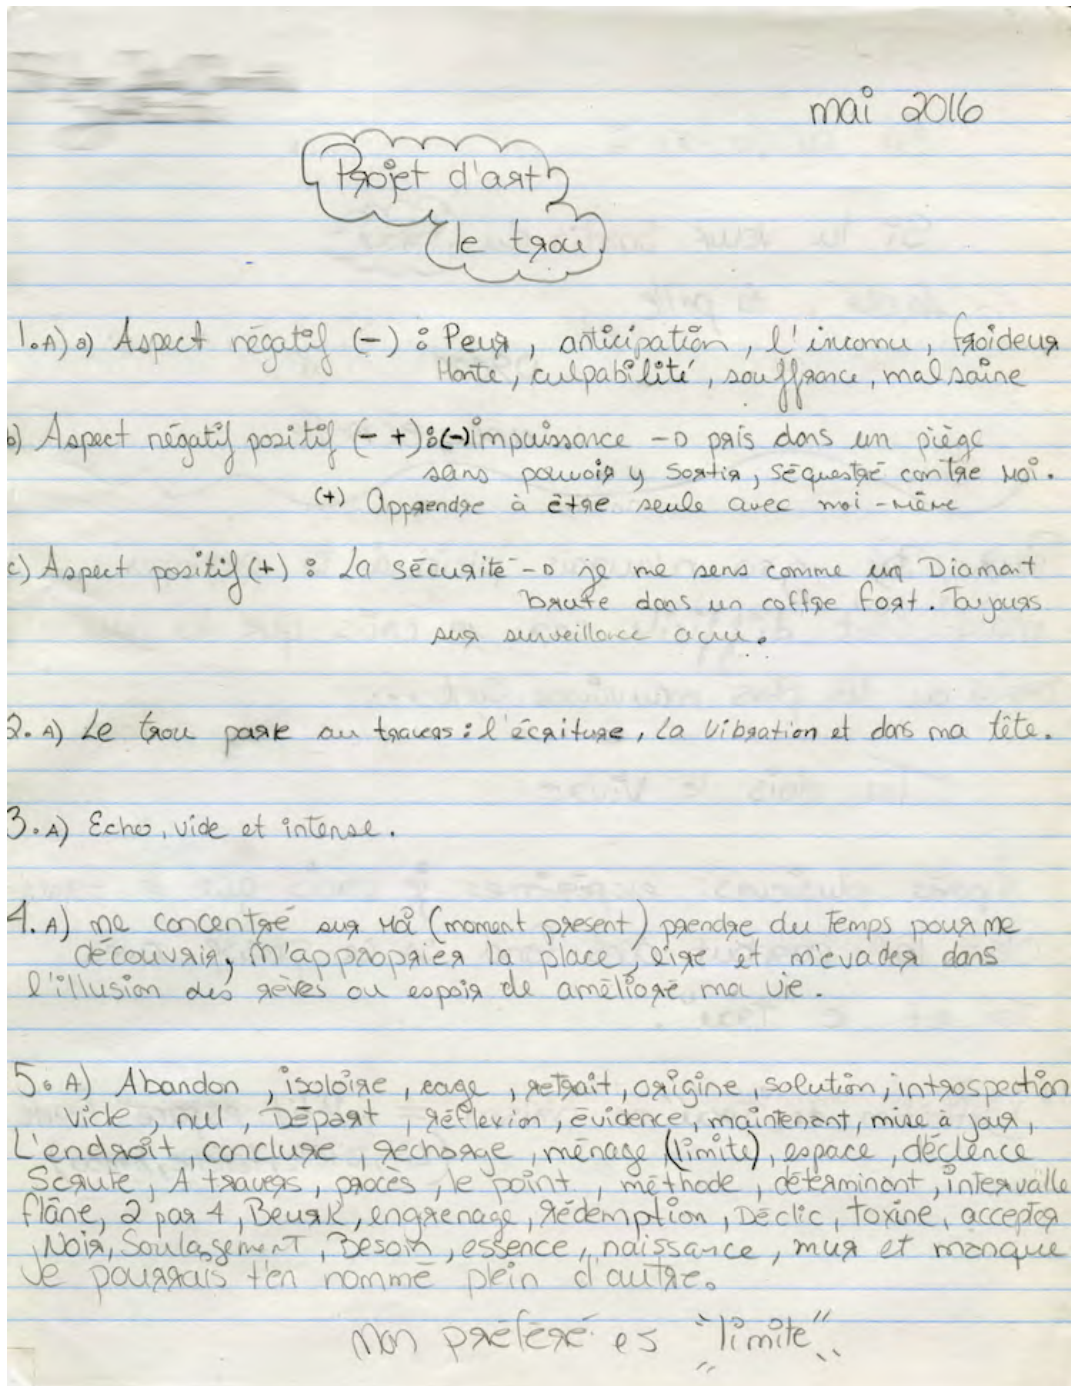 mai 2016
Projet d'art
le trou
1.A) a) Aspect négatif (-) : Peur, anticipation, l'inconnu, froideur
Honte, culpabilité, souffrance, malsaine
b) Aspect négatif positif (- +) : (-) impuissance → pris dans un piège
sans pouvoir y sortir, séquestré contre moi.
(+) Apprendre à être seule avec moi-même
c) Aspect positif (+) : La sécurité → je me sens comme un Diamant
brute dans un coffre fort. Toujours
sur surveillance acru.
2. A) Le trou parle au travers : l'écriture, la vibration et dans ma tête.
3. A) Echo, vide et intense.
4. A) me concentré sur moi (moment présent) prendre du temps pour me
découvrir, m'approprier la place, lire et m'evader dans
l'illusion des rêves ou espoir de amélioré ma vie.
5. A) Abandon, isoloire, cage, retrait, origine, solution, introspection
vide, nul, Départ, réflexion, évidence, maintenant, mise à jour,
L'endroit, conclure, recharge, ménage (limite), espace, déclence
Scrute, A travers, procès, le point, méthode, déterminant, intervalle
flâne, 2 par 4, Beurk, engrenage, rédemption, Déclic, toxine, accepter
Noir, Soulagement, Besoin, essence, naissance, mur et manque
Je pourrais t'en nommé plein d'autre.
Mon préféré es "limite"